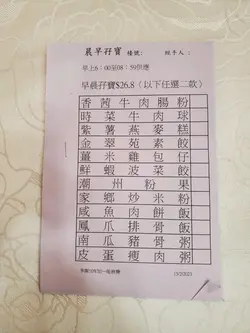 晨早孖寶 檯號: 經手人:
早上6:00至08:59供應
早晨孖寶$26.8(以下任選二款)
香茜牛肉腸粉
時菜牛肉球
紫薯燕麥糕
金翠苑素餃
薑米雞包仔
鮮蝦菠菜餃
潮州粉果
家鄉炒米粉
咸魚肉餅飯
鳳爪排骨飯
南瓜豬骨粥
皮蛋瘦肉粥